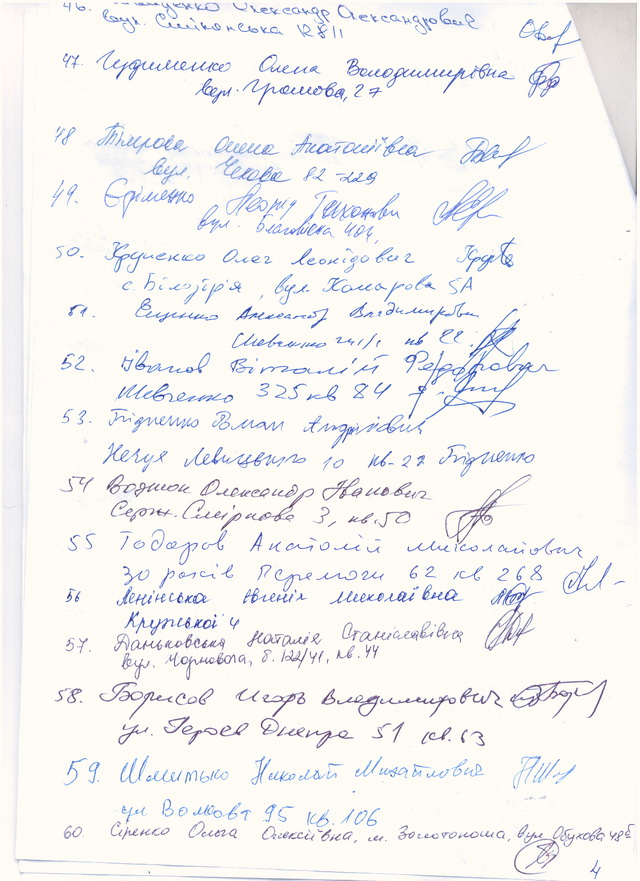 46. Олександр Олександрович
вул. Смілянська 128/1
47. Олена Володимирівна
вул. Громова, 27
48 Олена Анатоліївна
вул. Чехова 82-229
49. Єрьменко Леонід
вул.
50. Круценко Олег Леонідович
с. Білозір'я, вул. Комарова 5А
51. Ещенко Александр Владимирович
кв 22.
52. Іванов Віталій Федорович
Шевченко 325 кв 84
53. Підченко Роман Андрійович
Нечуя Левицького 10 кв. 27 Підченко
54 Олександр Іванович
Серж. Смірнова 3, кв. 50
55 Тодоров Анатолій Миколайович
30 років Перемоги 62 кв 268
56 Ленінська Югенія Миколаївна
4
57. Даньковська Наталія Станіславівна
вул. Чорновола, б. 122/41, кв. 44
58. Борисов Игорь Владимирович
ул. Героев Днепра 51 кв. 63
59. Николай Михайлович
ул 95 кв. 106
60. Сіренко Ольга Олексіївна, м. Золотоноша, вул. Обухова 48
4